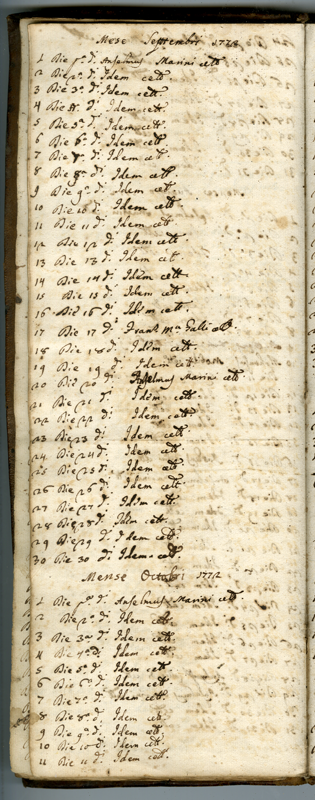 Mese Septembri 1772
1 Die pa. di Anselmus Marini cett.
2 Die 2a. di Idem cett.
3 Die 3a. di Idem cett.
4 Die 4a. di Idem cett.
5 Die 5a. di Idem cett.
6 Die 6a. di Idem cett.
7 Die 7a. di Idem cett.
8 Die 8a. di Idem cett.
9 Die 9a. di Idem cett.
10 Die 10 di Idem cett.
11 Die 11 di Idem cett
12 Die 12 di Idem cett.
13 Die 13 di Idem cett
14 Die 14 di Idem cett.
15 Die 15 di Idem cett.
16 Die 16 di Idem cett.
17 Die 17 di Frans. Ma. Galli cett.
18 Die 18 di Idem cett.
19 Die 19 di Idem cett
20 Die 20 di Anselmus Marini cett.
21 Die 21 di Idem cett.
22 Die 22 di Idem cett.
23 Die 23 di Idem cett.
24 Die 24 di Idem cett.
25 Die 25 di Idem cett.
26 Die 26 di Idem cett.
27 Die 27 di Idem cett.
28 Die 28 di Idem cett.
29 Die 29 di Idem cett.
30 Die 30 di Idem cett.
Mense Octobri 1772
1 Die pa. di Anselmus Marini cett
2 Die 2a. di Idem cett.
3 Die 3a. di Idem cett.
4 Die 4a. di Idem cett.
5 Die 5a. di Idem cett.
6 Die 6a. di Idem cett.
7 Die 7a. di Idem cett.
8 Die 8a. di Idem cett.
9 Die 9a. di Idem cett.
10 Die 10 di Idem cett.
11 Die 11 di Idem cett.